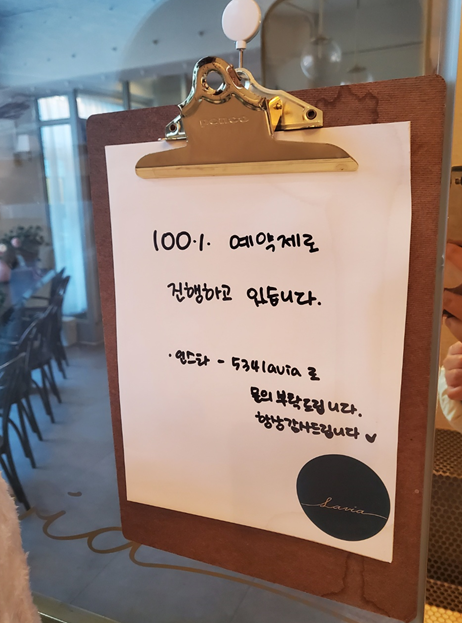 100% 예약제로
진행하고 있습니다.
·인스타 - 534lavia로
문의 부탁드립니다.
항상감사드립니다♥
Lavia